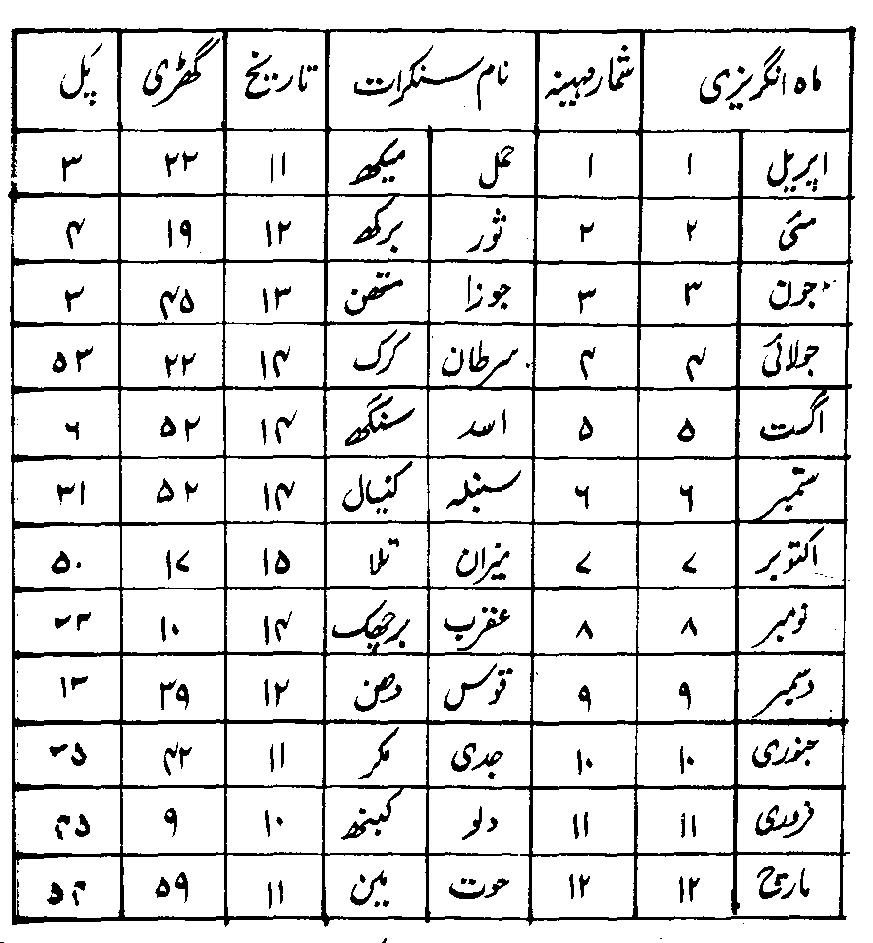 ماہ انگریزی شمار مہینہ نام سنکرات تاریخ گھڑی پَل
اپریل ۱ ۱ حمل میکھ ۱۱ ۲۲ ۳
مئی ۲ ۲ ثور برکھ ۱۲ ۱۹ ۴
جون ۳ ۳ جوزا متھن ۱۳ ۴۵ ۳
جولائی ۴ ۴ سرطان کرک ۱۴ ۲۲ ۵۳
اگست ۵ ۵ اسد سنگھ ۱۴ ۵۲ ۶
ستمبر ۶ ۶ سنبلہ کنیال ۱۴ ۵۲ ۳۱
اکتوبر ۷ ۷ میزان تلا ۱۵ ۱۷ ۵۰
نومبر ۸ ۸ عقرب برچھک ۱۴ ۱۰
دسمبر ۹ ۹ قوس دھن ۱۲ ۳۹ ۱۳
جنوری ۱۰ ۱۰ جدی مکر ۱۱ ۴۲
فروری ۱۱ ۱۱ دلو کنبھ ۱۰ ۹
مارچ ۱۲ ۱۲ حوت مین ۱۱ ۵۹